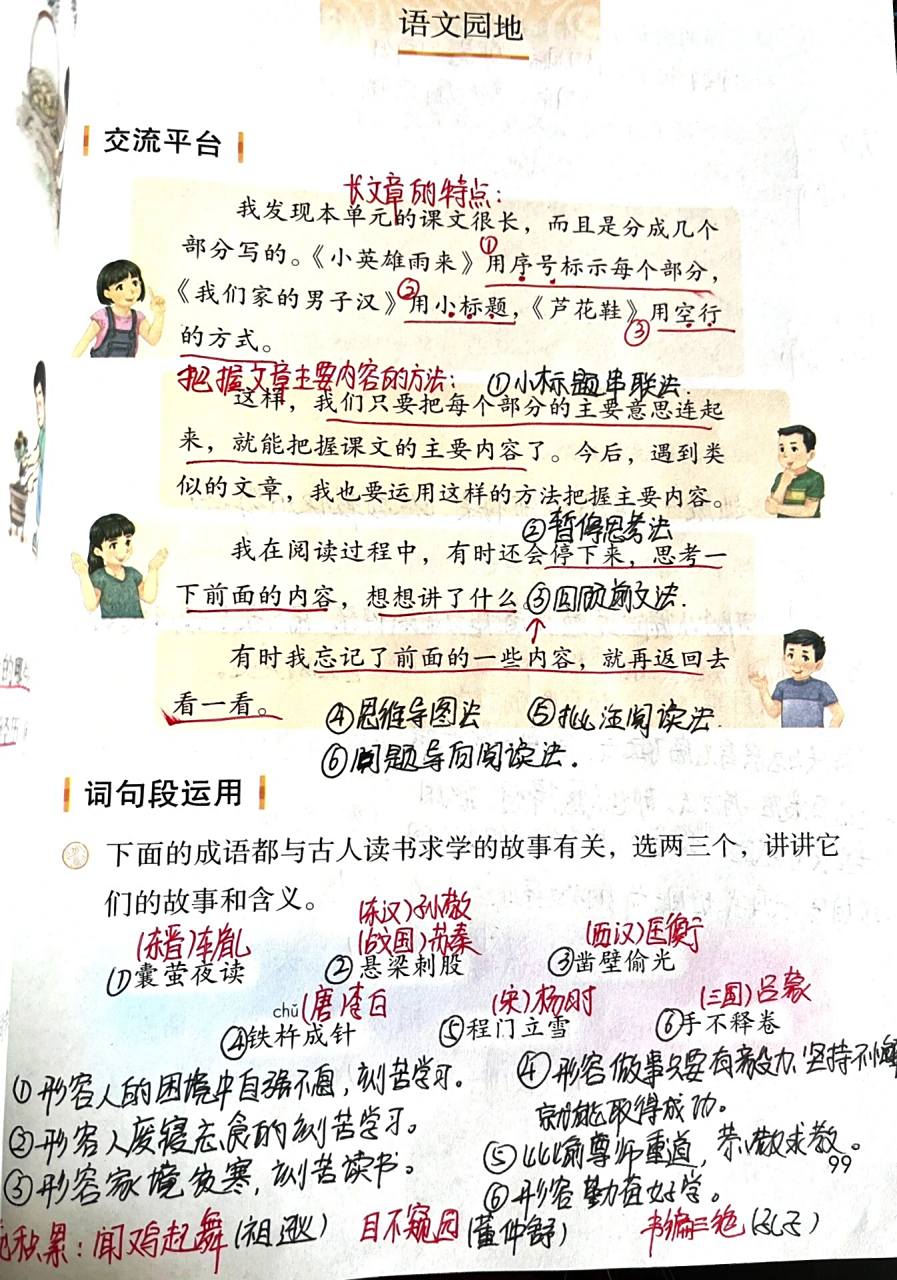 语文园地
交流平台
长文章的特点：
我发现本单元的课文很长，而且是分成几个
部分写的。《小英雄雨来》①用序号标示每个部分，
《我们家的男子汉》②用小标题，《芦花鞋》③用空行
的方式。
把握文章主要内容的方法： ①小标题串联法.
这样，我们只要把每个部分的主要意思连起
来，就能把握课文的主要内容了。今后，遇到类
似的文章，我也要运用这样的方法把握主要内容。
②暂停思考法
我在阅读过程中，有时还会停下来，思考一
下前面的内容，想想讲了什么。③回顾前文法.
有时我忘记了前面的一些内容，就再返回去
看一看。 ④思维导图法 ⑤批注阅读法.
⑥问题导向阅读法.
词句段运用
下面的成语都与古人读书求学的故事有关，选两三个，讲讲它
们的故事和含义。
(东汉)孙敬
(东晋)车胤 (战国)苏秦 (西汉)匡衡
①囊萤夜读 ②悬梁刺股 ③凿壁偷光
chǔ (唐)李白 (宋)杨时 (三国)吕蒙
④铁杵成针 ⑤程门立雪 ⑥手不释卷
①形容人的困境中自强不息，刻苦学习。
④形容做事只要有毅力，坚持不懈
就能取得成功。
②形容人废寝忘食的刻苦学习。
⑤比喻尊师重道，恭敬求教。
99
③形容家境贫寒，刻苦读书。
⑥形容勤奋好学。
积累：闻鸡起舞(祖逖) 目不窥园(董仲舒) 韦编三绝(孔子)